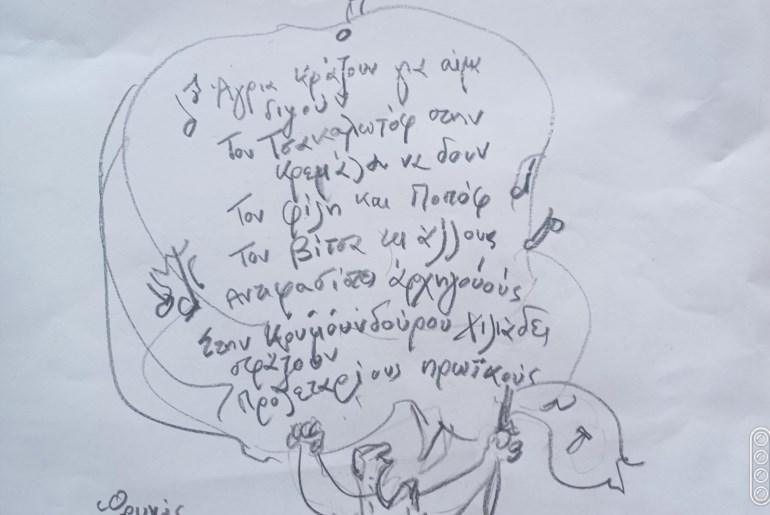 Άγρια κράζουν για αίμα
διψούν
Τον Τσακαλωτόφ στην
κρεμάλα να δουν
Τον φίλη και Ποπόφ
Τον βίτσα κι άλλους
Αντιφασίστες άρχηγούούς
Στην Κουμουνδούρου χιλιάδες
σφάζουν
προλετάριους ηρωϊκούς